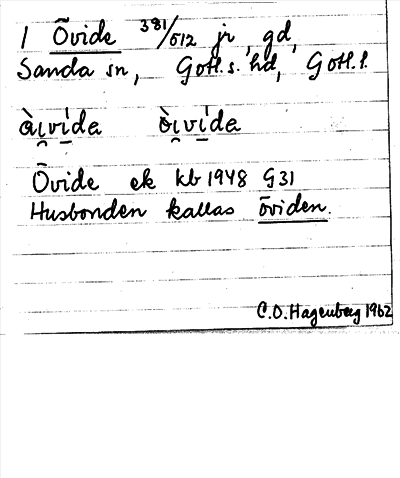 1 Övide 381/512 jr, gd,
Sanda sn, Gotl.s. hd, Gotl. l.
àı̯vída òı̯vída
Övide ek kb 1948 G31
Husbonden kallas öviden.
C.O. Hagenberg 1962